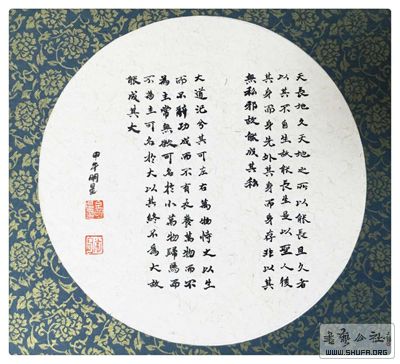 天長地久天地之所以能長且久者
以其不自生故能長生是以聖人後
其身而身先外其身而身存非以其
無私邪故能成其私
大道氾兮其可左右萬物恃之以生
而不辭功成而不有衣養萬物而不
為主常無欲可名於小萬物歸焉而
不為主可名於大以其終不為大故
能成其大
甲午明星
書藝公社
WWW.SHUFA.ORG